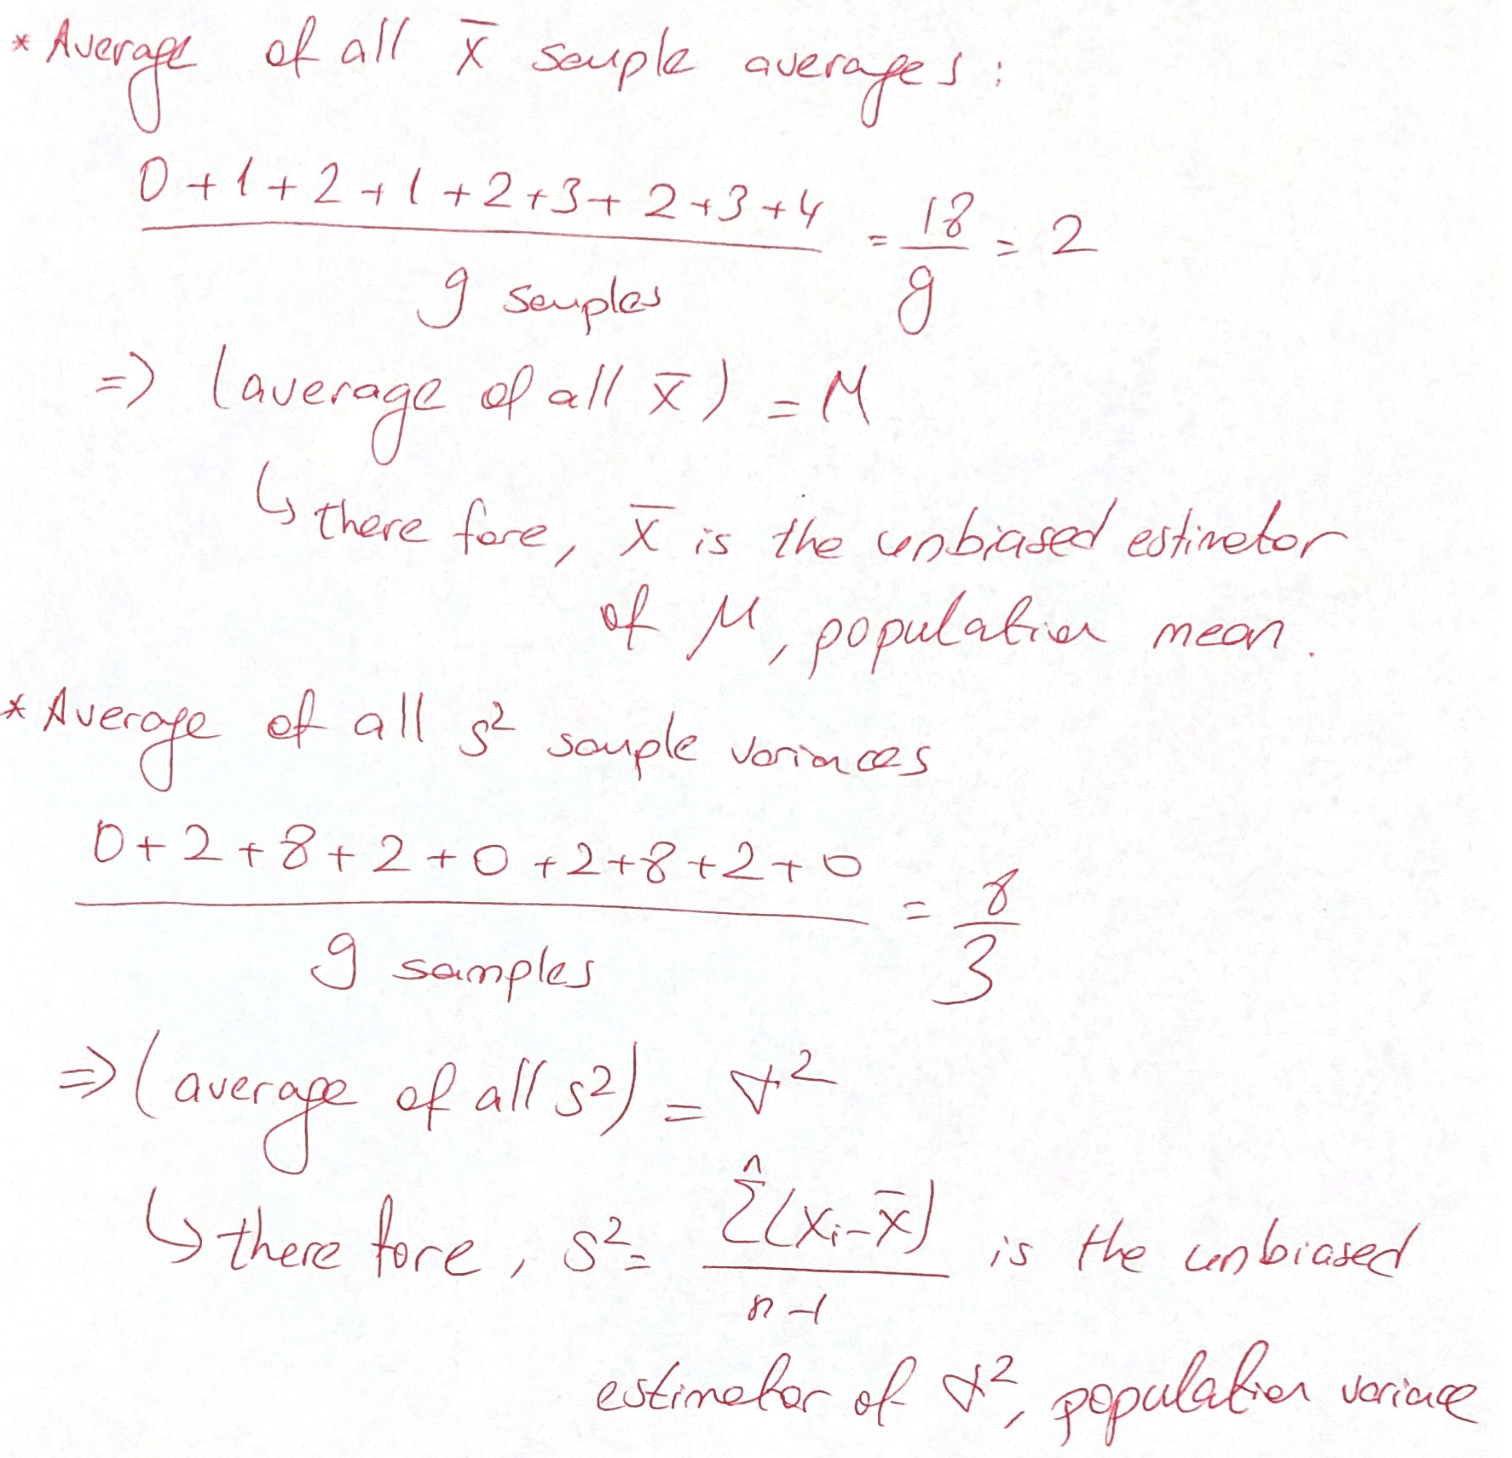 * Average of all x̄ sample averages:
0+1+2+1+2+3+2+3+4
= 18/9 = 2
9 samples
=> (average of all x̄) = M
↳ there fore, x̄ is the unbiased estimator
of μ, population mean.
* Average of all s² sample variances
0+2+8+2+0+2+8+2+0
= 8/3
9 samples
=> (average of all s²) = σ²
↳ there fore, s² = Σⁿ(xᵢ-x̄) / n-1 is the unbiased
estimator of σ², population variance